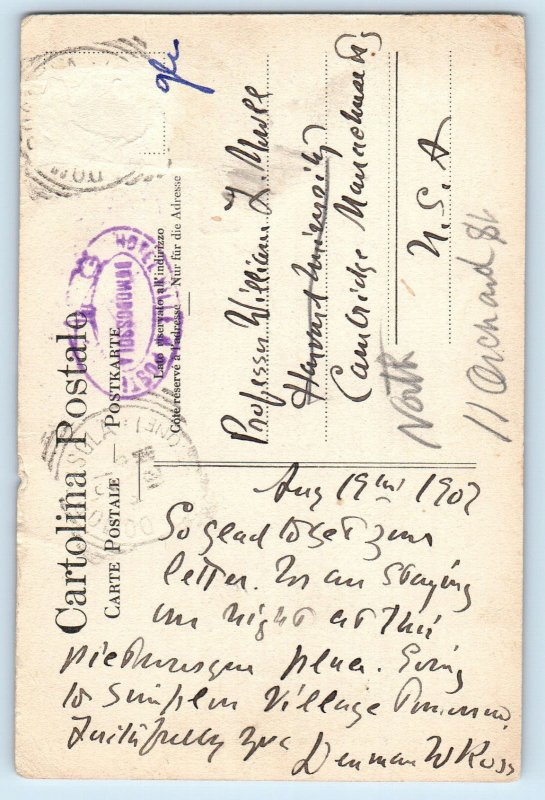 Cartolina Postale
CARTE POSTALE — POSTKARTE
Lato riservato all'indirizzo
Côté réservé à l'adresse — Nur für die Adresse
HOTEL
POSTA
DOMODOSSOLA
Professor William
Harvard University
Cambridge Massachusetts
U.S.A
North
11 Orchard St
Aug 19th 1907
So glad to get your
letter. We are staying
one night at this
picturesque place. Going
to Simplon Village tomorrow.
Faithfully yrs
Denman W Ross